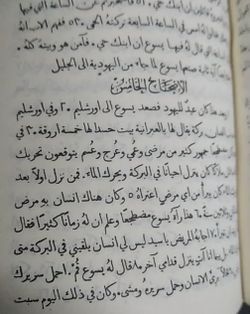 الساعة السابعة تركته الحمى ٥٣ ففهم الاب انه
قال له فيها يسوع ان ابنك حي. فآمن هو وبيته كله.
آية ثانية صنعها يسوع لما جاء من اليهودية الى الجليل
الاصحاح الخامس
هذا كان عيد لليهود فصعد يسوع الى اورشليم ٢٠ وفي اورشليم
بركة يقال لها بالعبرانية بيت حسدا لها خمسة اروقة ٣٠ في
مضطجعا جمهور كثير من مرضى وعمي وعرج وعسم يتوقعون تحريك
كان ينزل احيانا في البركة ويحرك الماء. فمن نزل اولا بعد
كان يبرأ من اي مرض اعتراه ٥ وكان هناك انسان به مرض
وثلاثين سنة ٦ هذا رآه يسوع مضطجعا وعلم ان له زمانا كثيرا فقال
اجابه المريض يا سيد ليس لي انسان يلقيني في البركة متى
بينما انا آت ينزل قدامي آخر ٨ قال له يسوع قم. احمل سريرك
برئ الانسان وحمل سريره ومشى. وكان في ذلك اليوم سبت